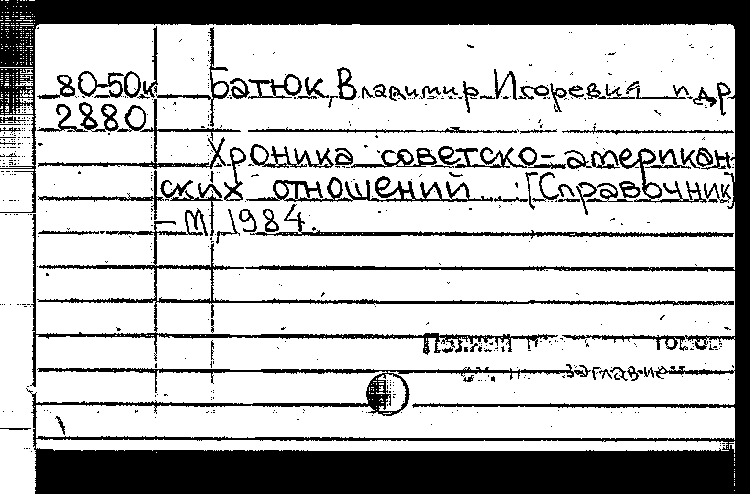 80-50к Батюк, Владимир Игоревич и др
2880
Хроника советско-американ
ских отношений : [Справочник]
- М, 1984.
Полный
см. заглавием